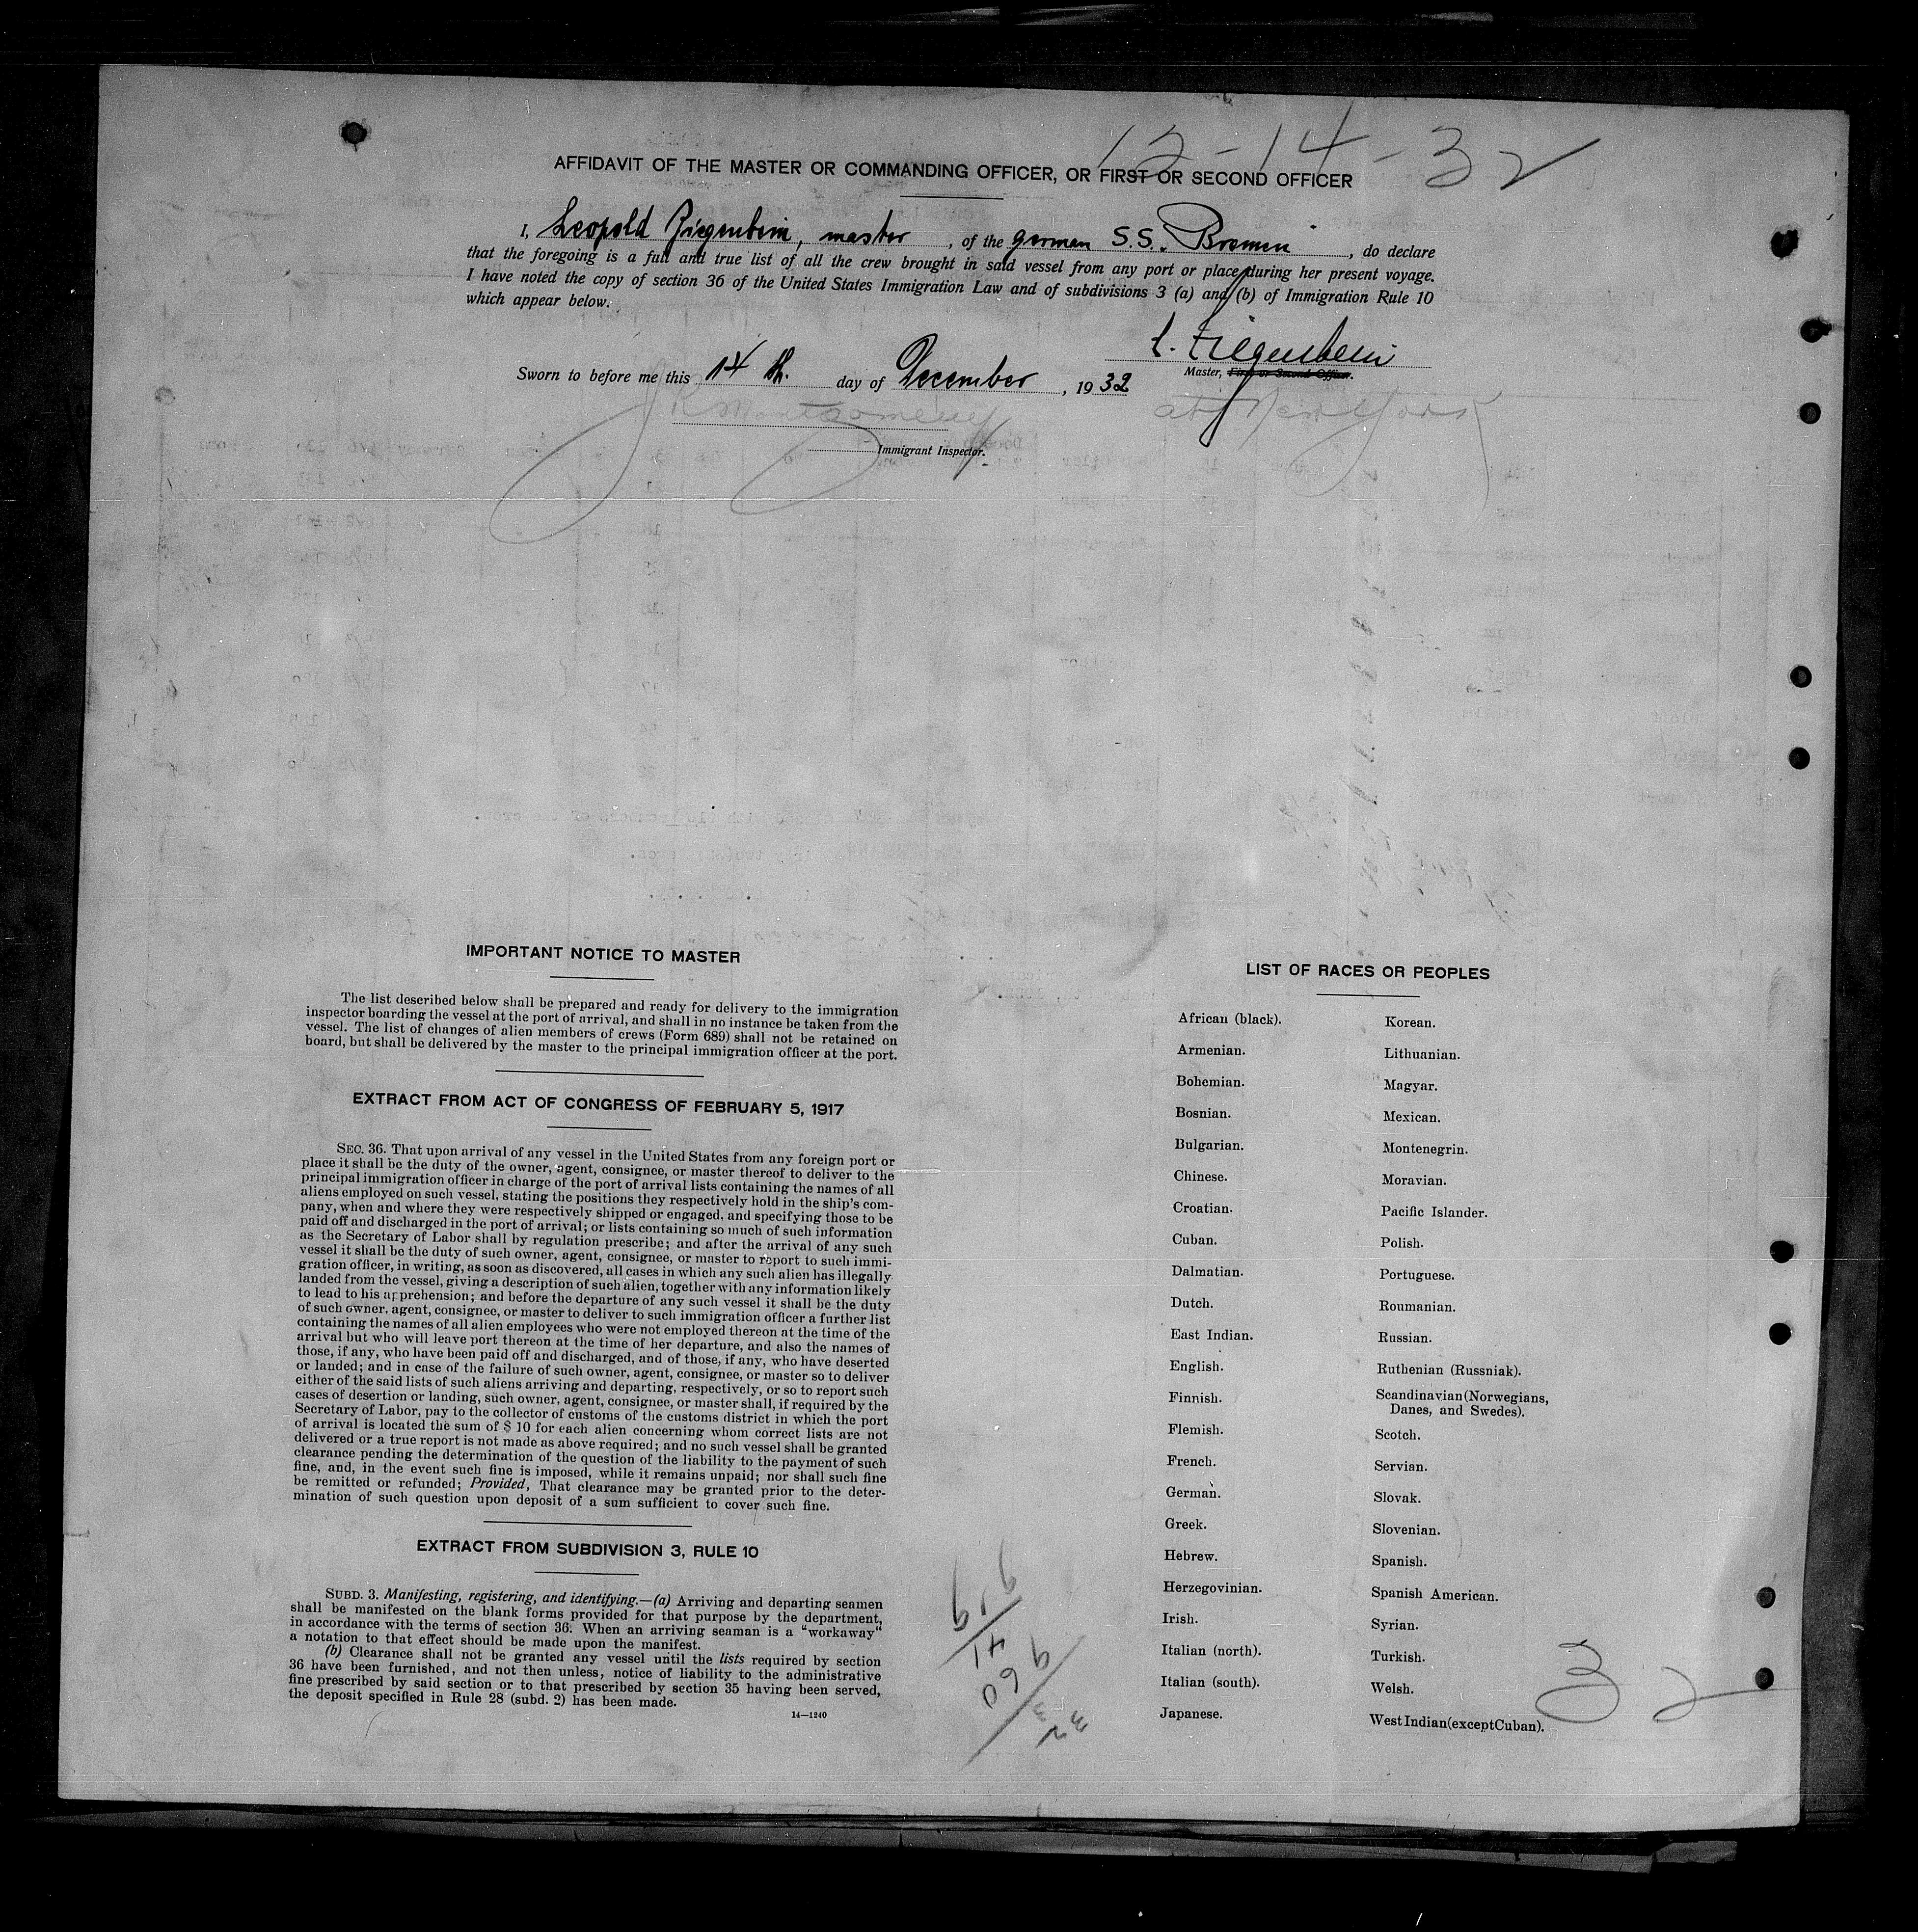 12-14-32
AFFIDAVIT OF THE MASTER OR COMMANDING OFFICER, OR FIRST OR SECOND OFFICER
I, Leopold Ziegenbein, master, of the german S.S. "Bremen", do declare
that the foregoing is a full and true list of all the crew brought in said vessel from any port or place during her present voyage.
I have noted the copy of section 36 of the United States Immigration Law and of subdivisions 3 (a) and (b) of Immigration Rule 10
which appear below.
L. Ziegenbein
Master, First or Second Officer.
Sworn to before me this 14 th. day of December, 1932
Montgomery at New York
Immigrant Inspector.
IMPORTANT NOTICE TO MASTER
The list described below shall be prepared and ready for delivery to the immigration
inspector boarding the vessel at the port of arrival, and shall in no instance be taken from the
vessel. The list of changes of alien members of crews (Form 689) shall not be retained on
board, but shall be delivered by the master to the principal immigration officer at the port.
EXTRACT FROM ACT OF CONGRESS OF FEBRUARY 5, 1917
SEC. 36. That upon arrival of any vessel in the United States from any foreign port or
place it shall be the duty of the owner, agent, consignee, or master thereof to deliver to the
principal immigration officer in charge of the port of arrival lists containing the names of all
aliens employed on such vessel, stating the positions they respectively hold in the ship's com-
pany, when and where they were respectively shipped or engaged, and specifying those to be
paid off and discharged in the port of arrival; or lists containing so much of such information
as the Secretary of Labor shall by regulation prescribe; and after the arrival of any such
vessel it shall be the duty of such owner, agent, consignee, or master to report to such immi-
gration officer, in writing, as soon as discovered, all cases in which any such alien has illegally
landed from the vessel, giving a description of such alien, together with any information likely
to lead to his apprehension; and before the departure of any such vessel it shall be the duty
of such owner, agent, consignee, or master to deliver to such immigration officer a further list
containing the names of all alien employees who were not employed thereon at the time of the
arrival but who will leave port thereon at the time of her departure, and also the names of
those, if any, who have been paid off and discharged, and of those, if any, who have deserted
or landed; and in case of the failure of such owner, agent, consignee, or master so to deliver
either of the said lists of such aliens arriving and departing, respectively, or so to report such
cases of desertion or landing, such owner, agent, consignee, or master shall, if required by the
Secretary of Labor, pay to the collector of customs of the customs district in which the port
of arrival is located the sum of $ 10 for each alien concerning whom correct lists are not
delivered or a true report is not made as above required; and no such vessel shall be granted
clearance pending the determination of the question of the liability to the payment of such
fine, and, in the event such fine is imposed, while it remains unpaid; nor shall such fine
be remitted or refunded; Provided, That clearance may be granted prior to the deter-
mination of such question upon deposit of a sum sufficient to cover such fine.
EXTRACT FROM SUBDIVISION 3, RULE 10
SUBD. 3. Manifesting, registering, and identifying.—(a) Arriving and departing seamen
shall be manifested on the blank forms provided for that purpose by the department,
in accordance with the terms of section 36. When an arriving seaman is a "workaway"
a notation to that effect should be made upon the manifest.
(b) Clearance shall not be granted any vessel until the lists required by section
36 have been furnished, and not then unless, notice of liability to the administrative
fine prescribed by said section or to that prescribed by section 35 having been served,
the deposit specified in Rule 28 (subd. 2) has been made.
14—1240
LIST OF RACES OR PEOPLES
African (black).
Armenian.
Bohemian.
Bosnian.
Bulgarian.
Chinese.
Croatian.
Cuban.
Dalmatian.
Dutch.
East Indian.
English.
Finnish.
Flemish.
French.
German.
Greek.
Hebrew.
Herzegovinian.
Irish.
Italian (north).
Italian (south).
Japanese.
Korean.
Lithuanian.
Magyar.
Mexican.
Montenegrin.
Moravian.
Pacific Islander.
Polish.
Portuguese.
Roumanian.
Russian.
Ruthenian (Russniak).
Scandinavian (Norwegians,
Danes, and Swedes).
Scotch.
Servian.
Slovak.
Slovenian.
Spanish.
Spanish American.
Syrian.
Turkish.
Welsh.
West Indian (except Cuban).
32